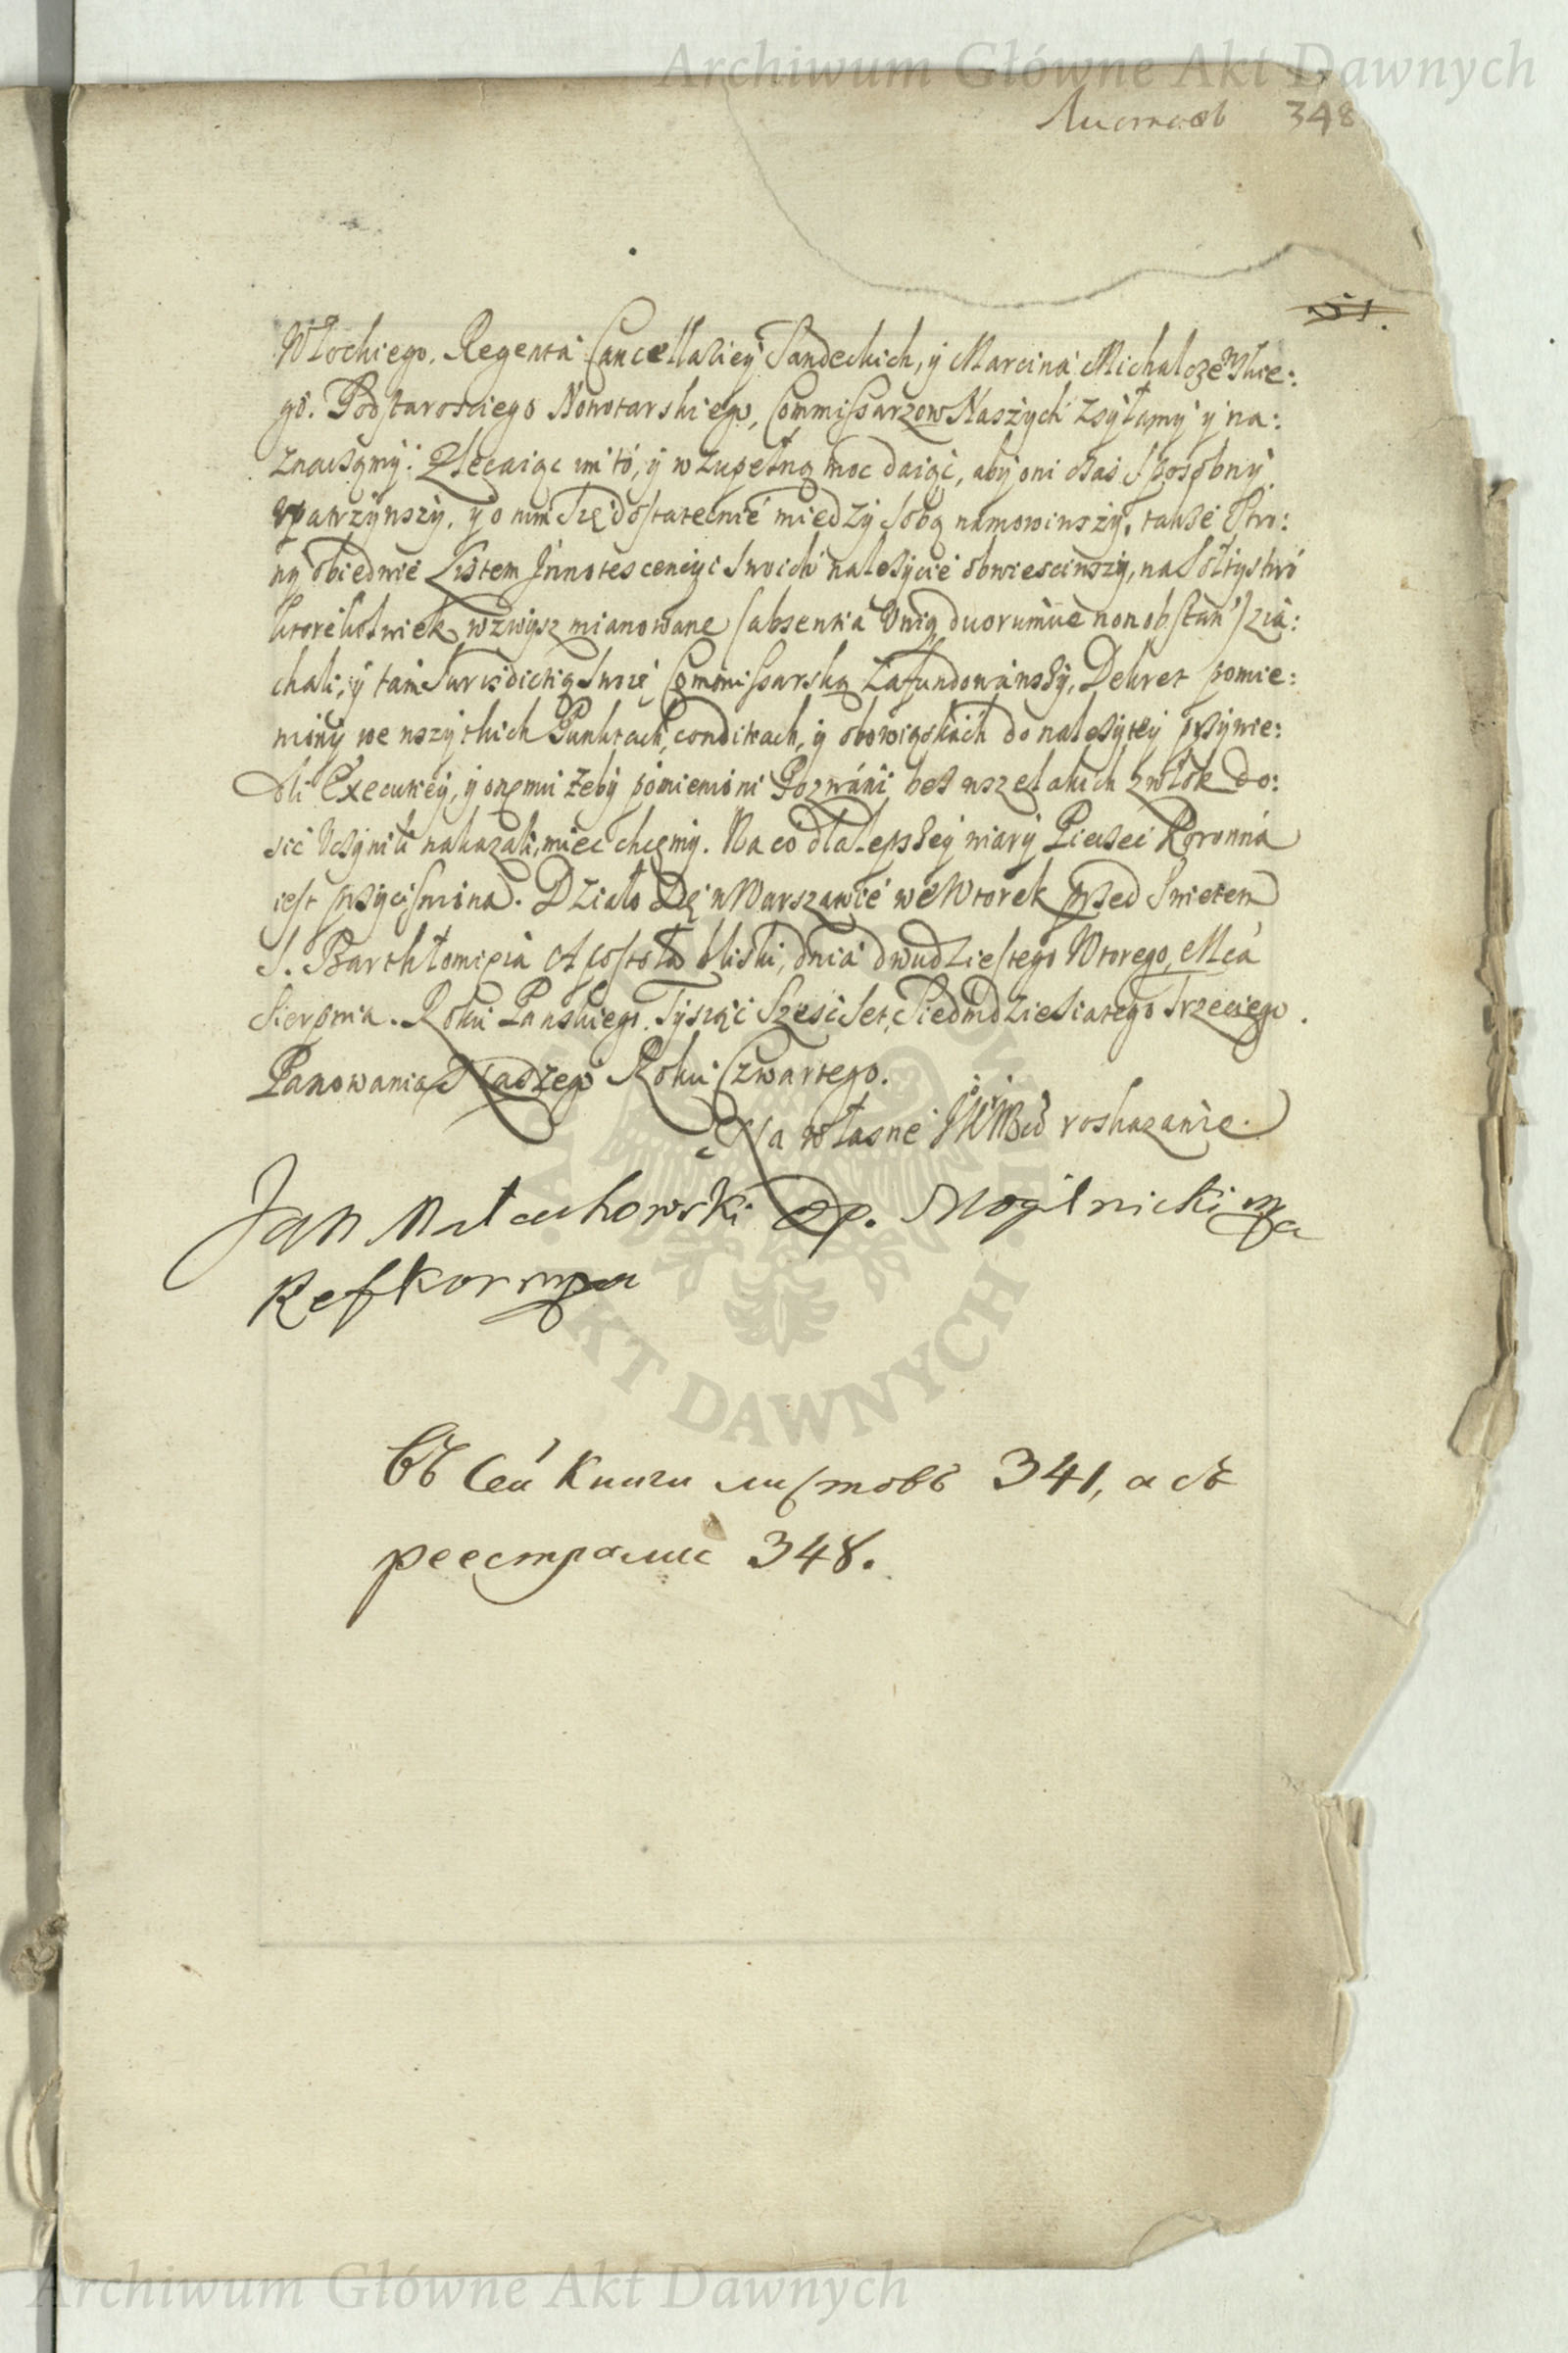 Archiwum Główne Akt Dawnych
Листовъ 348
Włockiego, Regentá Cancellariey Sandeckich, ÿ Marciná Michalczewskie:
gó. Podstarosciego Nowotarskiego, Commissarzow Naszych zsyłamy ÿ na:
znaczamy: Zlecaiąc im tó, ÿ w zupełną moc daiąc, aby oni czas sposobny
upatrzywszy, ÿ o nim się dostatecnié miedzy sobą namowiwszy, takze stro:
ny obiedwie Listem Innotescencyi swoich nalezycie obwiesciwszy, na Sołtystwó
ktorekolwiek wzwysz mianowane (absentia unig duorumue non obstań) ziá:
chali, ÿ tám Jurisdictią swoię Commissarską zafundowáwszy, Dekret pomie:
niony we wszytkich Punktach, conditiach, ÿ obowiąskách do nalezytey przywie:
dli Execuciey, ÿ onęmu żeby pomienióni Pozwáni bez wszelakich zwłok do:
sić uczynili nakazali, miec chcęmy. Na co dla lepszey wiary Pieczęć Koronná
iest przyciśniona. Działo się w Warszawié wé Wtorek przed Swietem
S. Barthłomieiá Apostoła bliski, dniá dwudziestego Wtorego, Mcá
Sierpnia. Roku Panskiego. Tysiąc Szesc Set, Siedmdziesiatego Trzeciego.
Panowania Naszego Roku Czwartego.
Na własne J K Mći roskazanie.
Jan Małachowski Op. Mogilnicki mp
Ref Kor mp
Въ сей книги листовъ 341, а съ
реестрами 348.
AKT DAWNYCH
Archiwum Główne Akt Dawnych